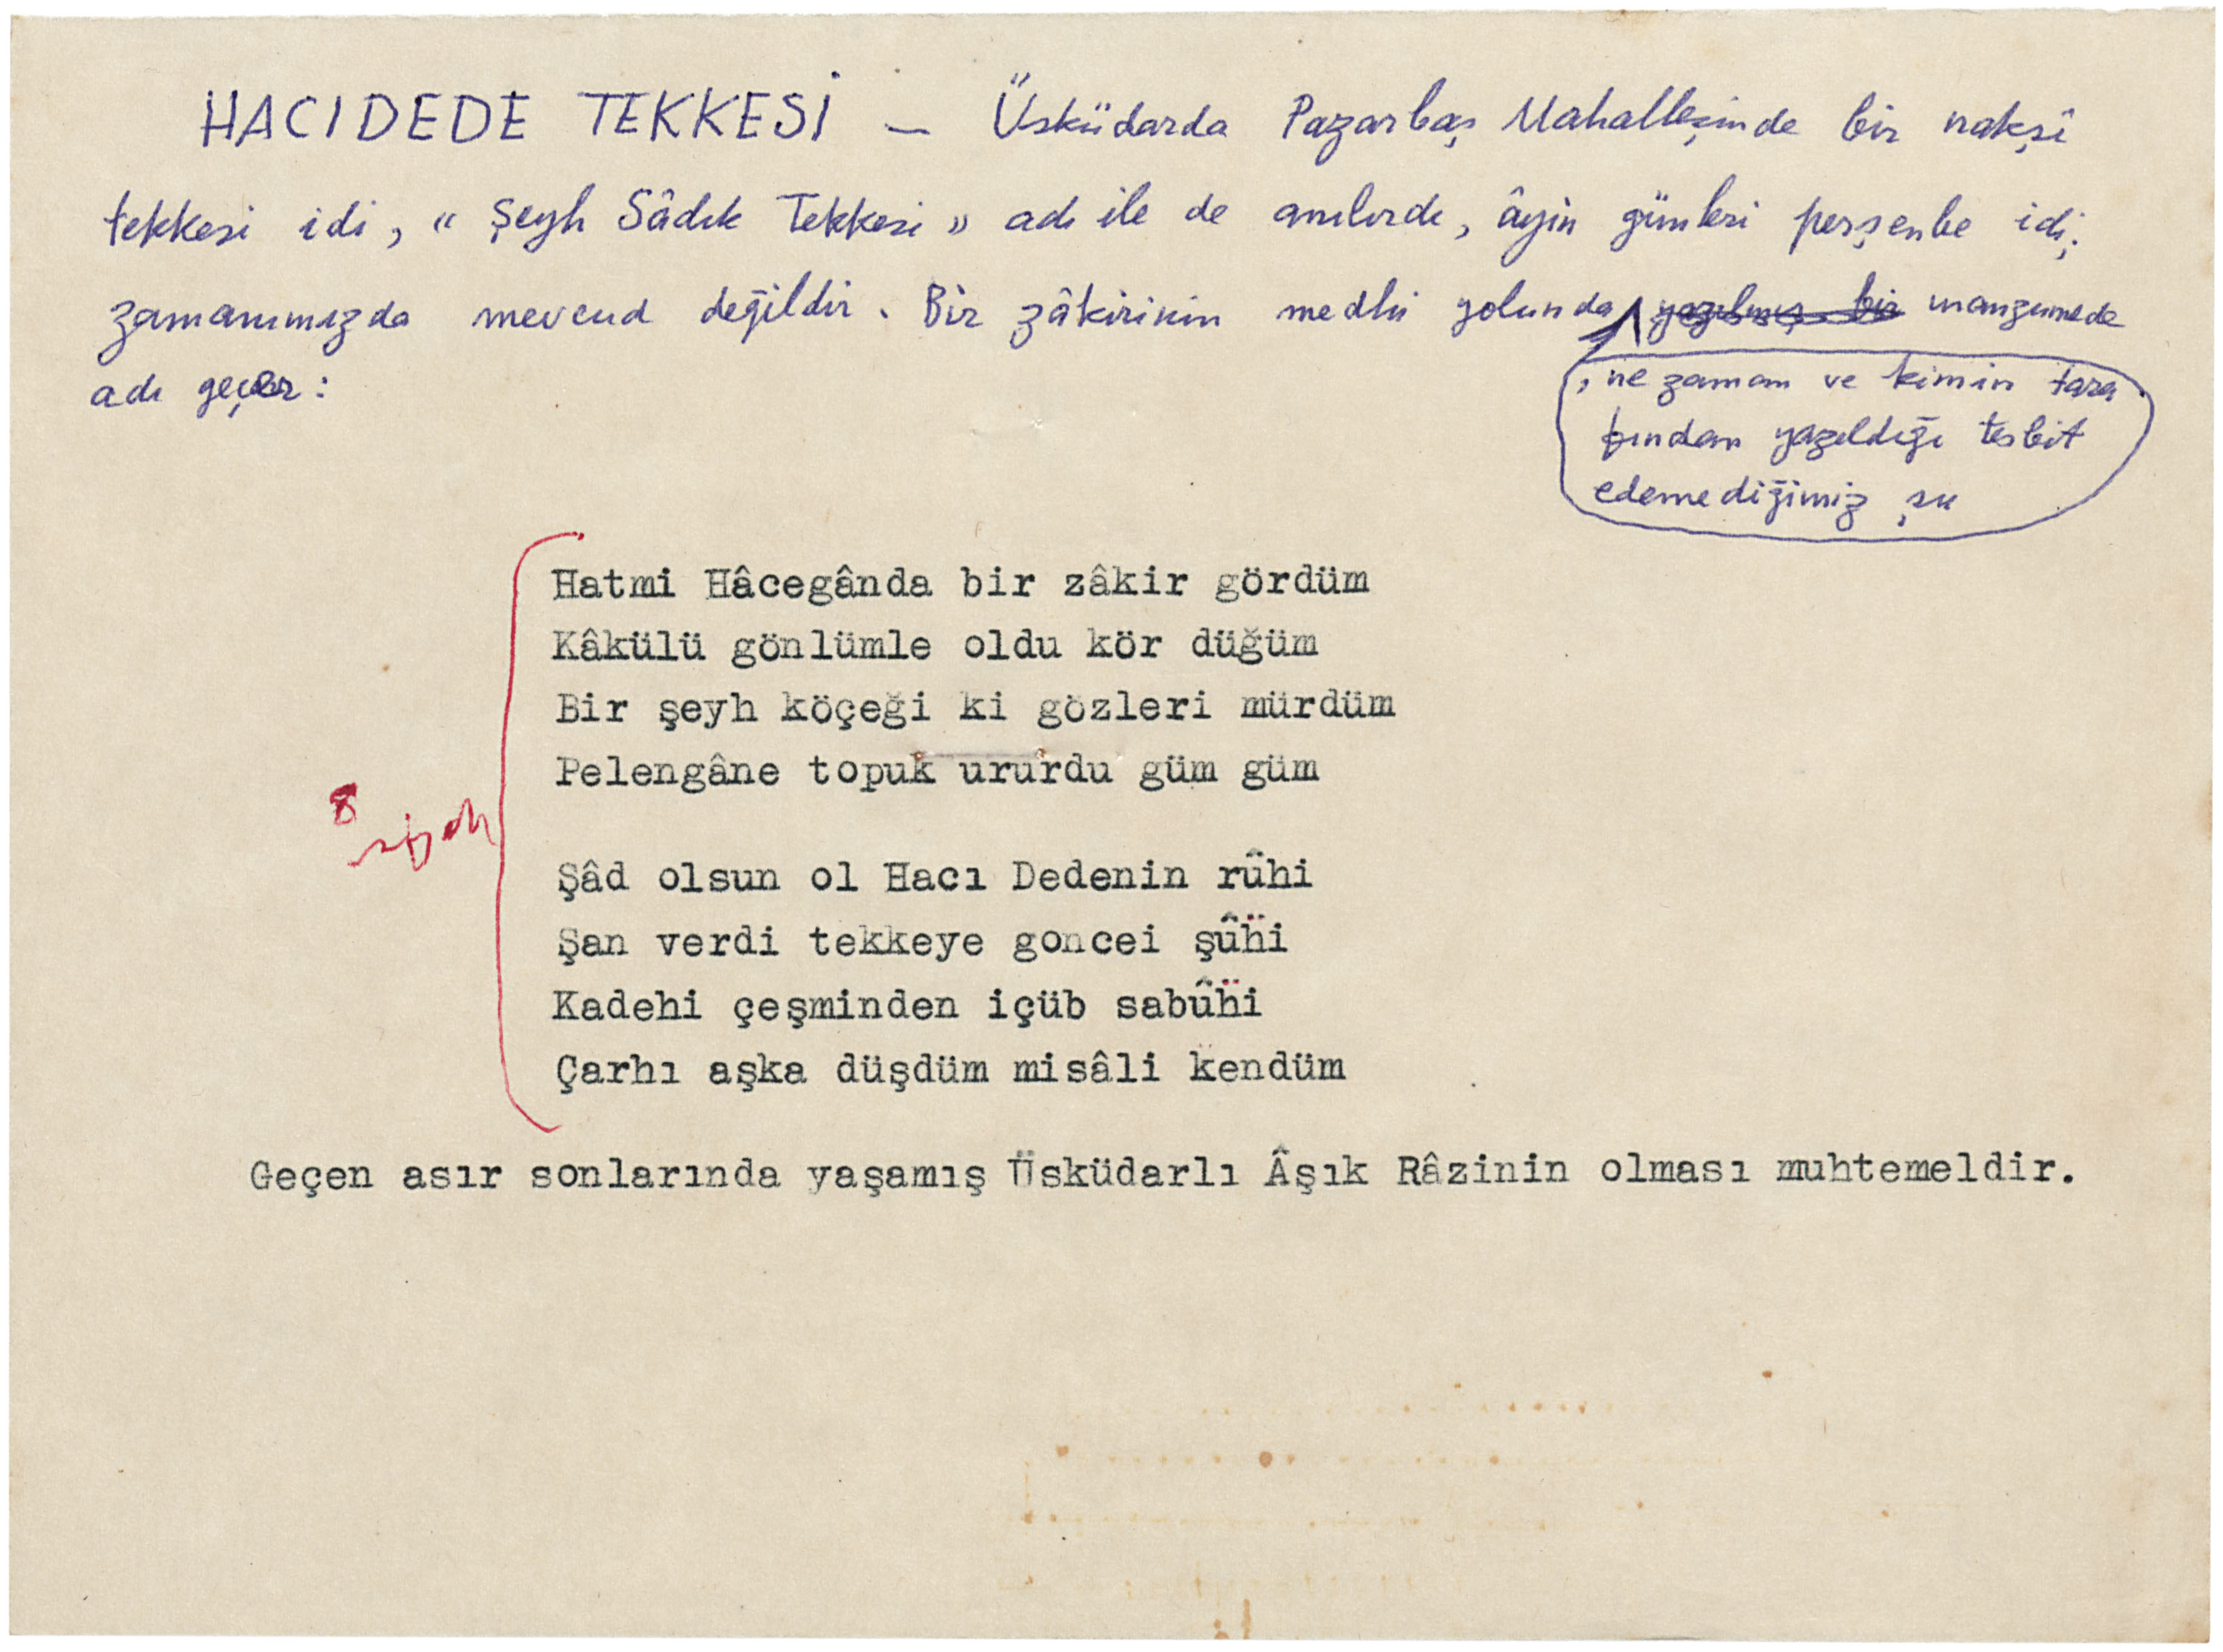 HACIDEDE TEKKESİ — Üsküdarda Pazarbaşı Mahallesinde bir nakşî
tekkesi idi, « Şeyh Sâdık Tekkesi » adı ile de anılırdı, âyin günleri perşenbe idi;
zamanımızda mevcud değildir. Bir zâkirinin medhi yolunda yazılmış bir manzumede
, ne zaman ve kimin tara
fından yazıldığı tesbit
edemediğimiz şu
adı geçer:
Hatmi Hâcegânda bir zâkir gördüm
Kâkülü gönlümle oldu kör düğüm
Bir şeyh köçeği ki gözleri mürdüm
Pelengâne topuk ururdu güm güm
8
siyah
Şâd olsun ol Hacı Dedenin rûhi
Şan verdi tekkeye goncei şûhi
Kadehi çeşminden içüb sabûhi
Çarhı aşka düşdüm misâli kendüm
Geçen asır sonlarında yaşamış Üsküdarlı Âşık Râzinin olması muhtemeldir.